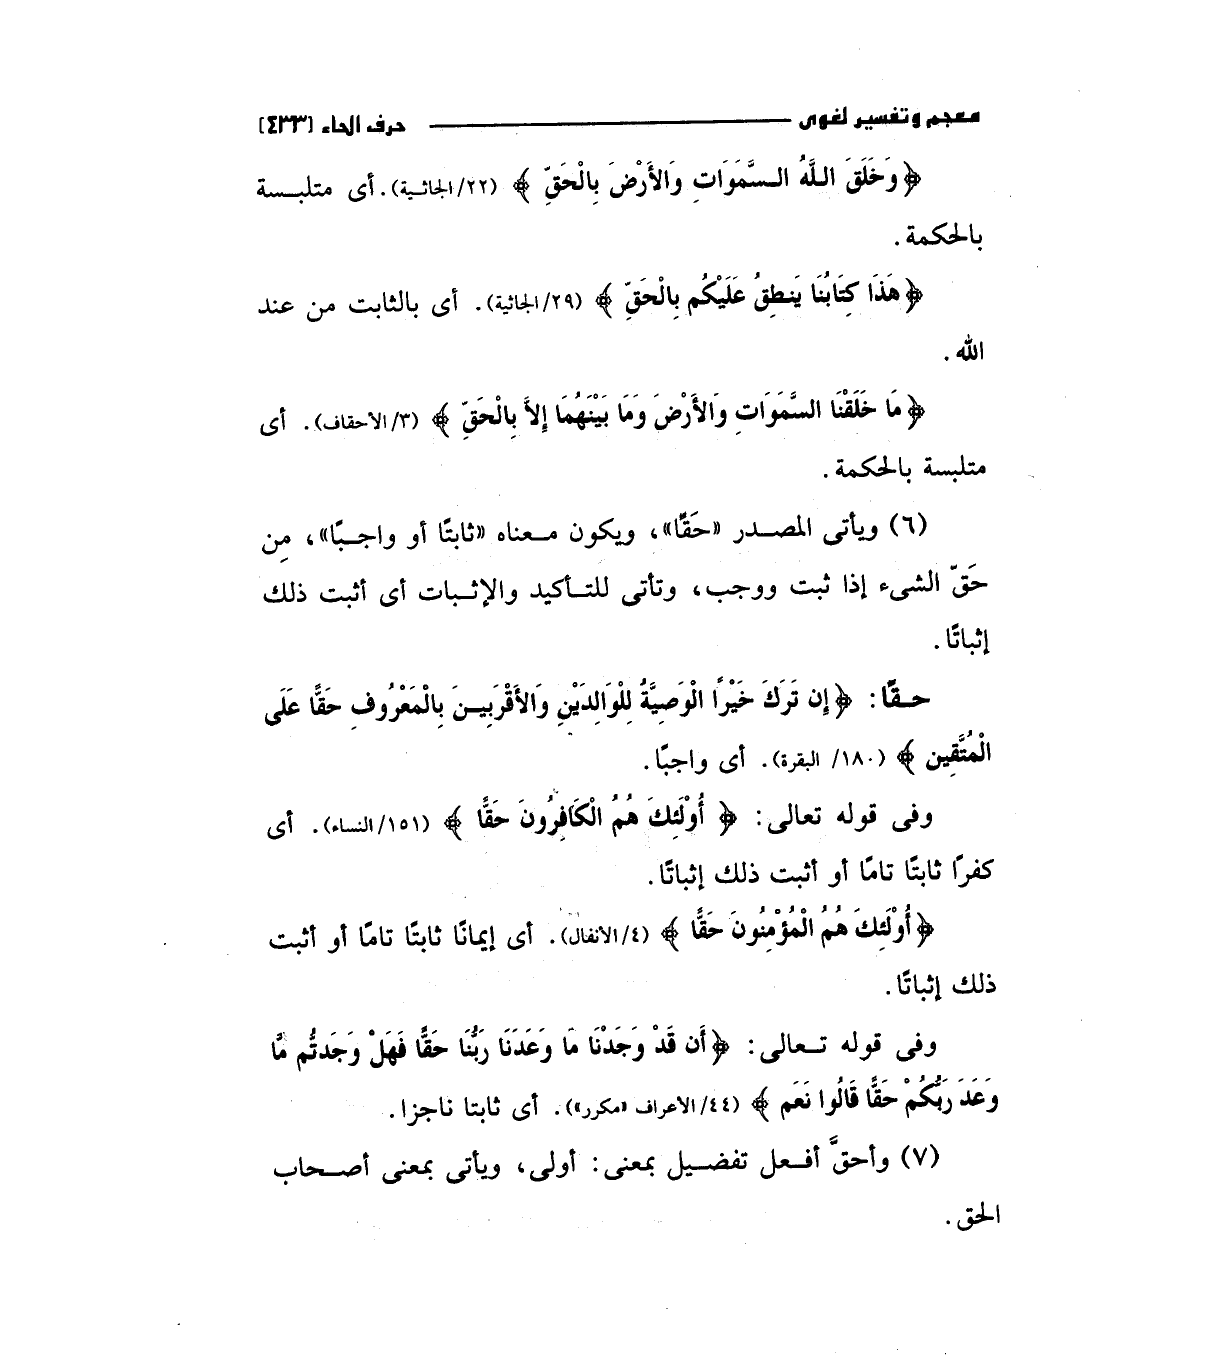 معجم وتفسير لغوى حرف الحاء [٤٣٣]
﴿وَخَلَقَ اللَّهُ السَّمَوَاتِ وَالأَرْضَ بِالْحَقِّ ﴾ (٢٢/الجاثية). أى متلبسة
بالحكمة.
﴿هَذَا كِتَابُنَا يَنطِقُ عَلَيْكُم بِالْحَقِّ ﴾ (٢٩/الجاثية). أى بالثابت من عند
الله.
﴿مَا خَلَقْنَا السَّمَوَاتِ وَالأَرْضَ وَمَا بَيْنَهُمَا إِلاَّ بِالْحَقِّ ﴾ (٣/الأحقاف). أى
متلبسة بالحكمة.
(٦) ويأتى المصدر «حَقًّا»، ويكون معناه «ثابتًا أو واجبًا»، مِن
حَقّ الشىء إذا ثبت ووجب، وتأتى للتأكيد والإثبات أى أثبت ذلك
إثباتًا.
حقًّا: ﴿إِن تَرَكَ خَيْرًا الْوَصِيَّةُ لِلْوَالِدَيْنِ وَالأَقْرَبِينَ بِالْمَعْرُوفِ حَقًّا عَلَى
الْمُتَّقِين ﴾ (١٨٠/ البقرة). أى واجبًا.
وفى قوله تعالى: ﴿ أُوْلَئِكَ هُمُ الْكَافِرُونَ حَقًّا ﴾ (١٥١/النساء). أى
كفرًا ثابتًا تامًا أو أثبت ذلك إثباتًا.
﴿أُوْلَئِكَ هُمُ الْمُؤْمِنُونَ حَقًّا ﴾ (٤/الأنفال). أى إيمانًا ثابتًا تامًا أو أثبت
ذلك إثباتًا.
وفى قوله تعالى: ﴿أَن قَدْ وَجَدْنَا مَا وَعَدَنَا رَبُّنَا حَقًّا فَهَلْ وَجَدتُّم مَّا
وَعَدَ رَبُّكُمْ حَقًّا قَالُوا نَعَم ﴾ (٤٤/الأعراف «مكرر»). أى ثابتا ناجزا.
(٧) وأحقَّ أفعل تفضيل بمعنى: أولى، ويأتى بمعنى أصحاب
الحق.